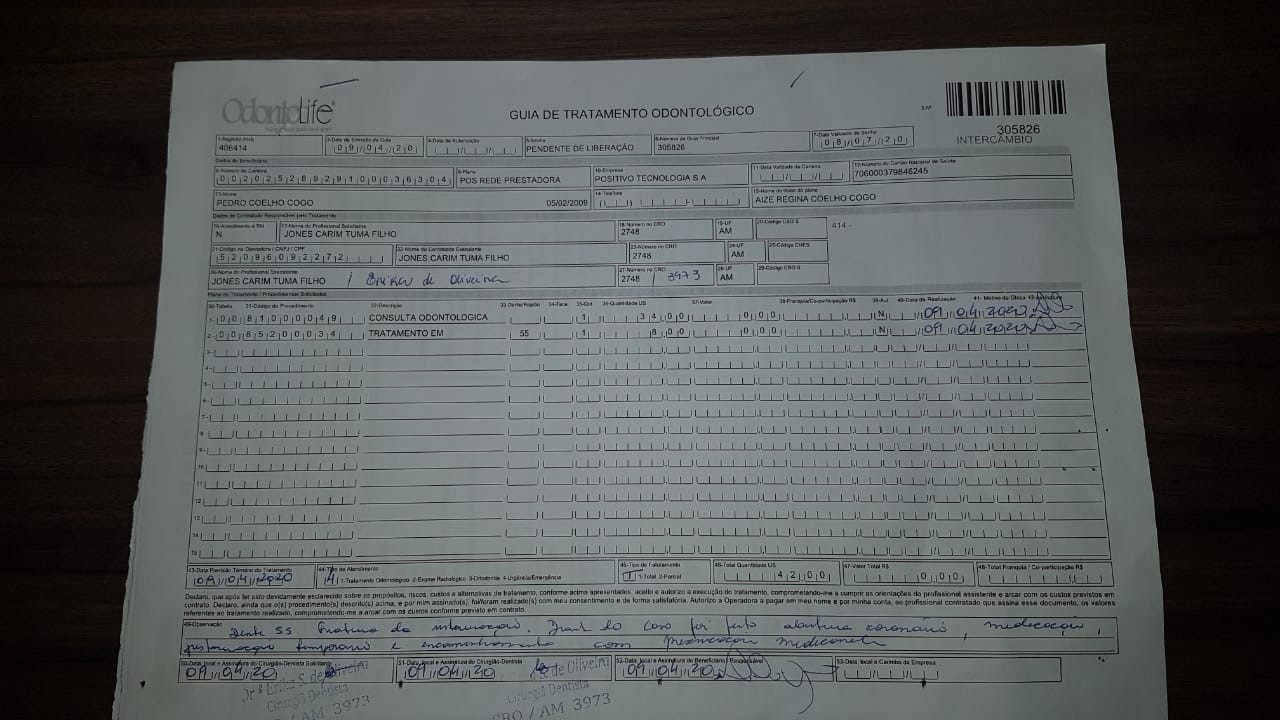 OdontoLife
GUIA DE TRATAMENTO ODONTOLÓGICO
2-Nº
305826
INTERCÂMBIO
1-Registro ANS 3-Data de Emissão da Guia 4-Data de Autorização 5-Senha 6-Número da Guia Principal 7-Data Validade da Senha
406414 09/04/20 PENDENTE DE LIBERAÇÃO 305826 08/07/20
Dados do Beneficiário
8-Número da Carteira 9-Plano 10-Empresa 11-Data Validade da Carteira 12-Número do Cartão Nacional de Saúde
00202528929100036304 POS REDE PRESTADORA POSITIVO TECNOLOGIA S A 706000379846245
13-Nome 14-Telefone 15-Nome do titular do plano
PEDRO COELHO COGO 05/02/2009 AIZE REGINA COELHO COGO
Dados do Contratado Responsável pelo Tratamento
16-Atendimento a RN 17-Nome do Profissional Solicitante 18-Número no CRO 19-UF 20-Código CBO S
N JONES CARIM TUMA FILHO 2748 AM 414 -
21-Código na Operadora / CNPJ / CPF 22-Nome do Contratado Executante 23-Número no CRO 24-UF 25-Código CNES
52096092272 JONES CARIM TUMA FILHO 2748 AM
26-Nome do Profissional Executante 27-Número no CRO 28-UF 29-Código CBO S
JONES CARIM TUMA FILHO / de Oliveira 2748 / 3973 AM
Plano de Tratamento / Procedimentos Solicitados
30-Tabela 31-Código do Procedimento 32-Descrição 33-Dente/Região 34-Face 35-Qtd 36-Quantidade US 37-Valor 38-Franquia/Co-participação R$ 39-Aut 40-Data de Realização 41- Motivo da Glosa 42-Assinatura
1- 00 81000049 CONSULTA ODONTOLOGICA 1 34,00 0,00 N 09/04/2020
2- 00 85200034 TRATAMENTO EM 55 1 8,00 0,00 N 09/04/2020
3-
4-
5-
6-
7-
8-
9-
10-
11-
12-
13-
14-
15-
43-Data Previsão Término do Tratamento 44-Tipo de Atendimento 45-Tipo de Faturamento 46-Total Quantidade US 47-Valor Total R$ 48-Total Franquia / Co-participação R$
09/04/2020 4 1-Tratamento Odontológico 2-Exame Radiológico 3-Ortodontia 4-Urgência/Emergência 1-Total 2-Parcial 42,00 0,00
Declaro, que após ter sido devidamente esclarecido sobre os propósitos, riscos, custos e alternativas de tratamento, conforme acima apresentados, aceito e autorizo a execução do tratamento, comprometendo-me a cumprir as orientações do profissional assistente e arcar com os custos previstos em
contrato. Declaro, ainda que o(s) procedimento(s) descrito(s) acima, e por mim assinado(s), foi/foram realizado(s) com meu consentimento e de forma satisfatória. Autorizo a Operadora a pagar em meu nome e por minha conta, ao profissional contratado que assina esse documento, os valores
referentes ao tratamento realizado, comprometendo-me a arcar com os custos conforme previsto em contrato.
49-Observação
Dente 55 fratura da restauração. do caso foi feito abertura coronária, medicação,
restauração temporária e encaminhamento com
50-Data, local e Assinatura do Cirurgião-Dentista Solicitante 51-Data, local e Assinatura do Cirurgião-Dentista 52-Data, local e Assinatura do Beneficiário / Responsável 53-Data, local e Carimbo da Empresa
09/04/20 09/04/20 09/04/20
Drª Erika S. de Oliveira
Cirurgiã Dentista
/ AM 3973
de Oliveira
Cirurgiã Dentista
CRO / AM 3973